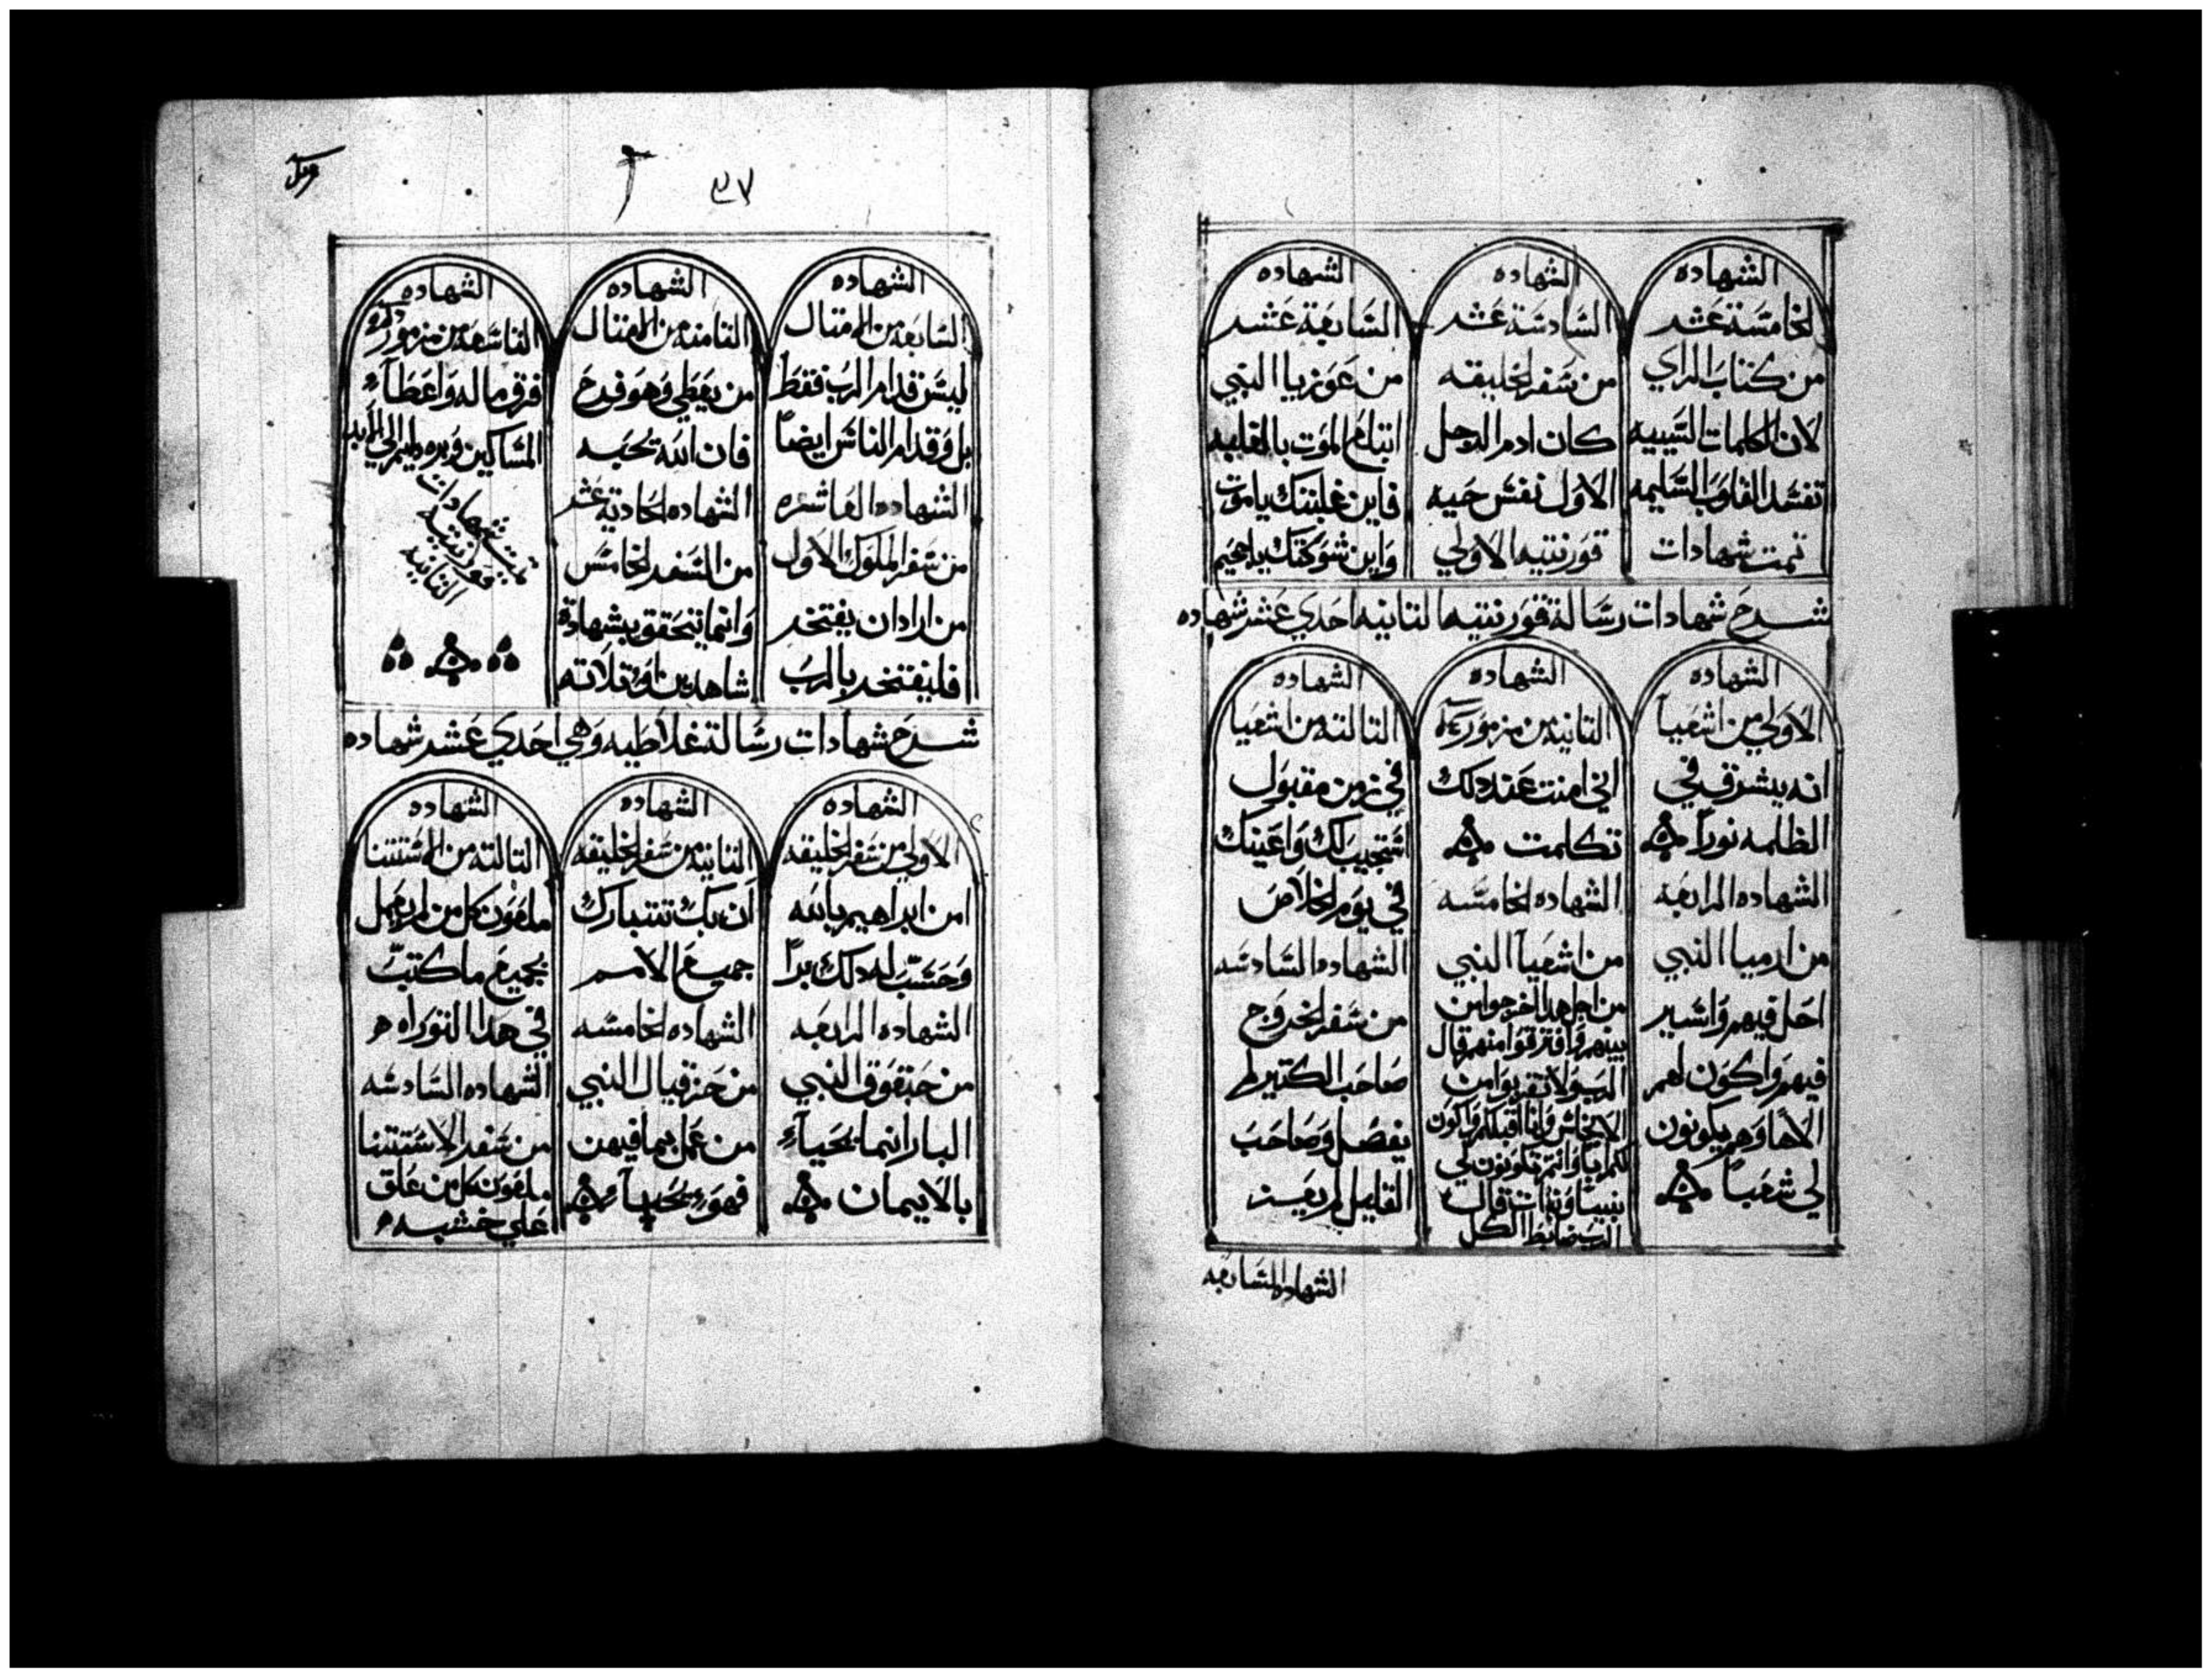 الشهاده
الخامسة عشر
من كتاب الراي
لان الكلمات السييه
تفسد القلوب السليمه
تمت شهادات
الشهاده
السادسة عشر
من سفر الخليقه
كان ادم الرجل
الاول نفس حيه
قورنتيه الاولي
الشهاده
السابعة عشر
من عوزيا النبي
ابتلع الموت بالغلبه
فاين غلبتك ياموت
واين شوكتك ياجحيم
شرح شهادات رسالة قورنتيه التانيه احدي عشر شهاده
الشهاده
الاولي من اشعيا
انه يشرق في
الظلمه نوراً
الشهاده الرابعه
من ارميا النبي
احل فيهم واسير
فيهم واكون لهم
الاها وهم يكونون
لي شعباً
الشهاده
التانيه من مزمور
اني امنت عند دلك
تكلمت
الشهاده الخامسه
من اشعيا النبي
من اجل هدا اخرجوا من
بينهم وافترقوا منهم قال
الرب ولا تقربوا من
الانجاس وانا اقبلكم واكون
لكم ابا وانتم تكونون لي
بنينا وبنات قال
الرب ضابط الكل
الشهاده
التالته من اشعيا
في زمن مقبول
استجيب لك واعينك
في يوم الخلاص
الشهاده السادسه
من سفر الخروج
صاحب الكتير لم
يفضل وصاحب
القليل لم يعيز
الشهاده السابعه
٣٧
الشهاده
السابعه من الامتال
ليس قدام الرب فقط
بل وقدام الناس ايضاً
الشهاده العاشره
من سفر الملوك الاول
من اراد ان يفتخر
فليفتخر بالرب
الشهاده
التامنه من الامتال
من يعطي وهو فرح
فان الله يحبه
الشهاده الحاديه عشر
من السفر الخامس
وانما تتحقق بشهادة
شاهدين او تلاته
الشهاده
التاسعه من مزمور
فرق ماله واعطاء
المساكين وبره دايم الي الابد
تمت شهادات
قورنتيه
التانيه
شرح شهادات رسالة غلاطيه وهي احدي عشر شهاده
الشهاده
الاولي من سفر الخليقه
امن ابراهيم بالله
وحسب له دلك براً
الشهاده الرابعه
من حبقوق النبي
البار انما يحياء
بالايمان
الشهاده
التانيه من سفر الخليقه
ان بك تتبارك
جميع الامم
الشهاده الخامسه
من حزقيال النبي
من عمل بما فيهن
فهو يحيا
الشهاده
التالته من الاستتنا
ملعون كل من لم يعمل
بجميع ما كتب
في هدا التوراه
الشهاده السادسه
من سفر الاستتنا
ملعون كل من علق
علي خشبه